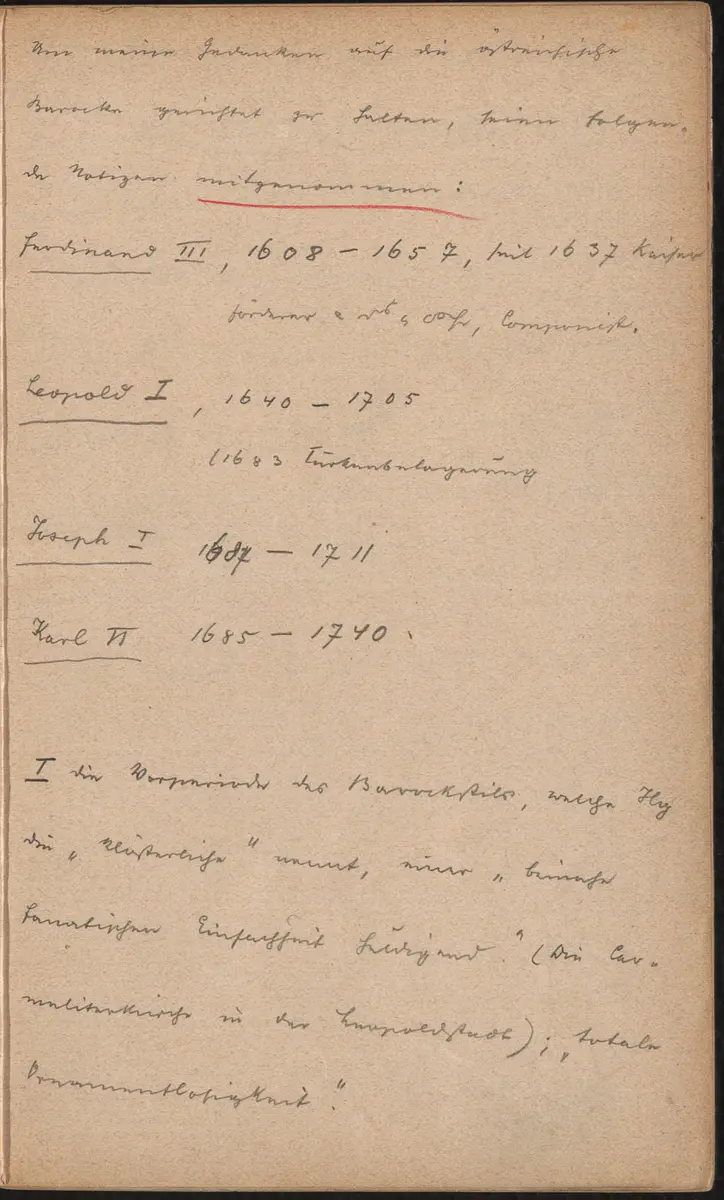 Um meine Gedanken auf die östreichische
Barocke gerichtet zu halten, seien folgen-
de Notizen mitgenommen:
Ferdinand III, 1608 – 1657, seit 1637 Kaiser
förderer, Componist.
Leopold I, 1640 – 1705
(1683 Türkenbelagerung
Joseph I 1687 – 1711
Karl VI 1685 – 1740.
I die Vorperiode des Barockstils, welche Ilg
die „klösterliche“ nennt, einer „beinahe
fanatischen Einfachheit huldigend.“ (Die Car-
meliterkirche in der Leopoldstadt); „totale
Ornamentlosigkeit“.